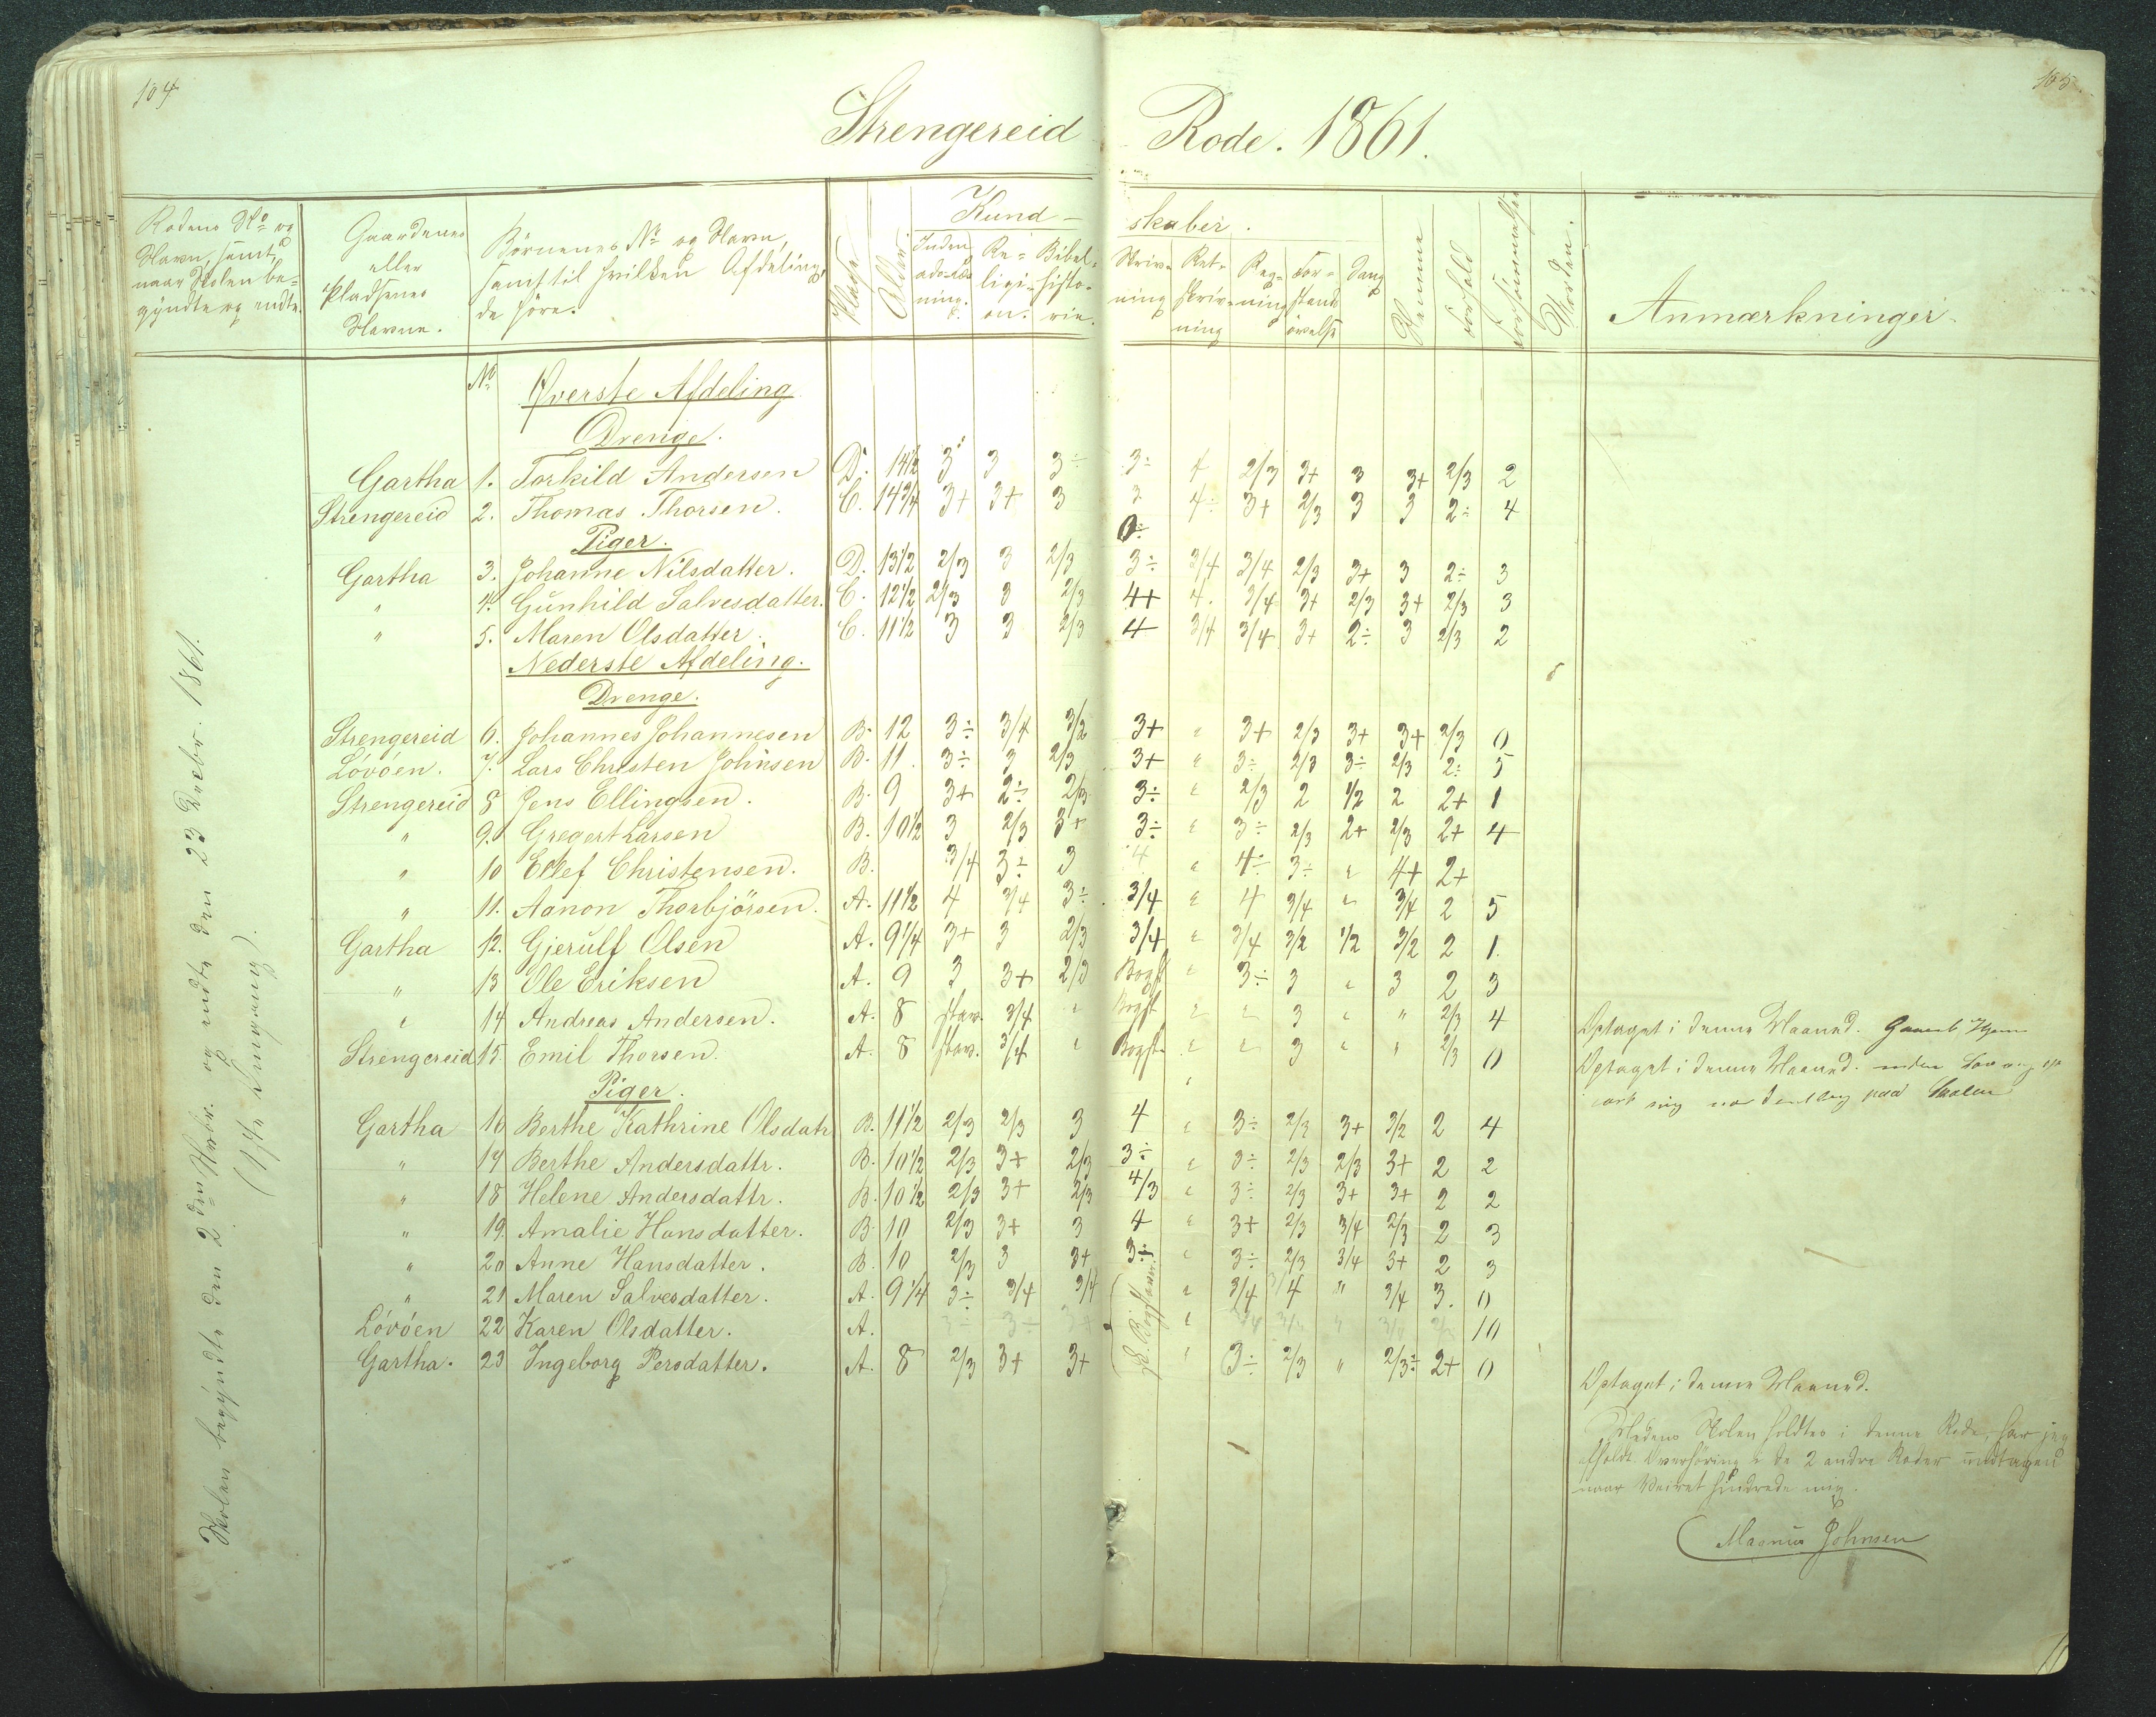 104
105
Strengereid Rode. 1861.
Rodens No og Navn, samt naar Skolen begyndte og endte.
Gaardenes eller Pladsenes Navne.
Børnenes No og Navn, samt til hvilken Afdeling de høre.
Klasse
Alder
Kundskaber.
Religion.
Bibelhistorie.
Skrivning
Retskrivning
Regning
Forstandsøvelse
Sang
Nemme
Forhold
Forsømmelser
Anmærkninger
No
Øverste Afdeling
Drenge.
Gartha 1. Torkild Andersen D. 14 1/2 3 3 3÷ 3÷ 4 2/3 3+ 3 3+ 2/3 2
Strengereid 2. Thomas Thorsen. C. 14 3/4 3+ 3+ 3 3 4÷ 3+ 2/3 3 3 2÷ 4
Piger.
Gartha 3. Johanne Nilsdatter. D. 13 1/2 2/3 3 2/3 3÷ 3/4 3/4 2/3 3+ 3 2÷ 3
" 4. Gunhild Salvesdatter. C. 12 1/2 2/3 3 2/3 4+ 4. 3/4 3+ 2/3 3+ 2/3 3
" 5. Maren Olsdatter. C. 11 1/2 3 3 2/3 4 3/4 3/4 3+ 2÷ 3 2/3 2
Nederste Afdeling.
Drenge.
Strengereid 6. Johannes Johannesen B. 12 3÷ 3/4 3/2 3+ " 3+ 2/3 3+ 3+ 2/3 0
Lövöen. 7. Lars Christen Johnsen B. 11. 3÷ 3 2/3 3+ " 3÷ 2/3 3÷ 2/3 2÷ 5
Strengereid 8 Jens Ellingsen. B. 9 3+ 2÷ 2/3 3÷ " 2/3 2 1/2 2 2+ 1
" 9. Gregert Larsen B. 10 1/2 3 2/3 3+ 3÷ " 3÷ 2/3 2+ 2/3 2+ 4
" 10 Ellef Christensen. B. 3/4 3÷ 3 4 " 4÷ 3÷ " 4+ 2+
" 11. Aanon Thorbjörsen. A. 11 1/2 4 3/4 3÷ 3/4 " 4 3/4 " 3/4 2 5
Gartha 12. Gjerulf Olsen A. 9 1/4 3+ 3 2/3 3/4 " 3/4 3/2 1/2 3/2 2 1.
" 13 Ole Eriksen A. 9 3 3+ 2/3 Bogst " 3÷ 3 " 3 2 3
" 14 Andreas Andersen. A. 8 stav. 3/4 " Bogst " " 3 " " 2/3 4 Optaget i denne Maaned.
Strengereid 15. Emil Thorsen. A. 8 stav. 3/4 " Bogst. " " 3 " " 2/3 0 Optaget i denne Maaned.
Piger.
Gartha 16 Berthe Kathrine Olsdatr B. 11 1/2 2/3 2/3 3 4 " 3÷ 2/3 3+ 3/2 2 4
" 17 Berthe Andersdattr. B. 10 1/2 2/3 3+ 2/3 3÷ " 3÷ 2/3 2/3 3+ 2 2
" 18 Helene Andersdattr. B. 10 1/2 2/3 3+ 2/3 4/3 " 3÷ 2/3 3+ 3+ 2 2
" 19. Amalie Hansdatter. B. 10 2/3 3+ 3 4 " 3+ 2/3 3/4 2/3 2 3
" 20 Anne Hansdatter. B. 10 2/3 3 3+ 3÷ " 3÷ 2/3 3/4 3+ 2 3
" 21 Maren Salvesdatter. A. 9 1/4 3÷ 3/4 3/4 " 3/4 4 " 3/4 3. 0
Lövöen 22 Karen Olsdatter. A. 10
Gartha. 23 Ingeborg Persdatter. A. 8 2/3 3+ 3+ " 3÷ 2/3 " 2/3÷ 2+ 0 Optaget i denne Maaned.
Skolen begyndte den 2den Novbr. og endte den 23 Decbr. 1861.
Medens Skolen holdtes i denne Rode, har jeg
afholdt Overhøring i de 2 andre Roder undtagen
naar Veiret hindrede mig.
Magnus Johnsen